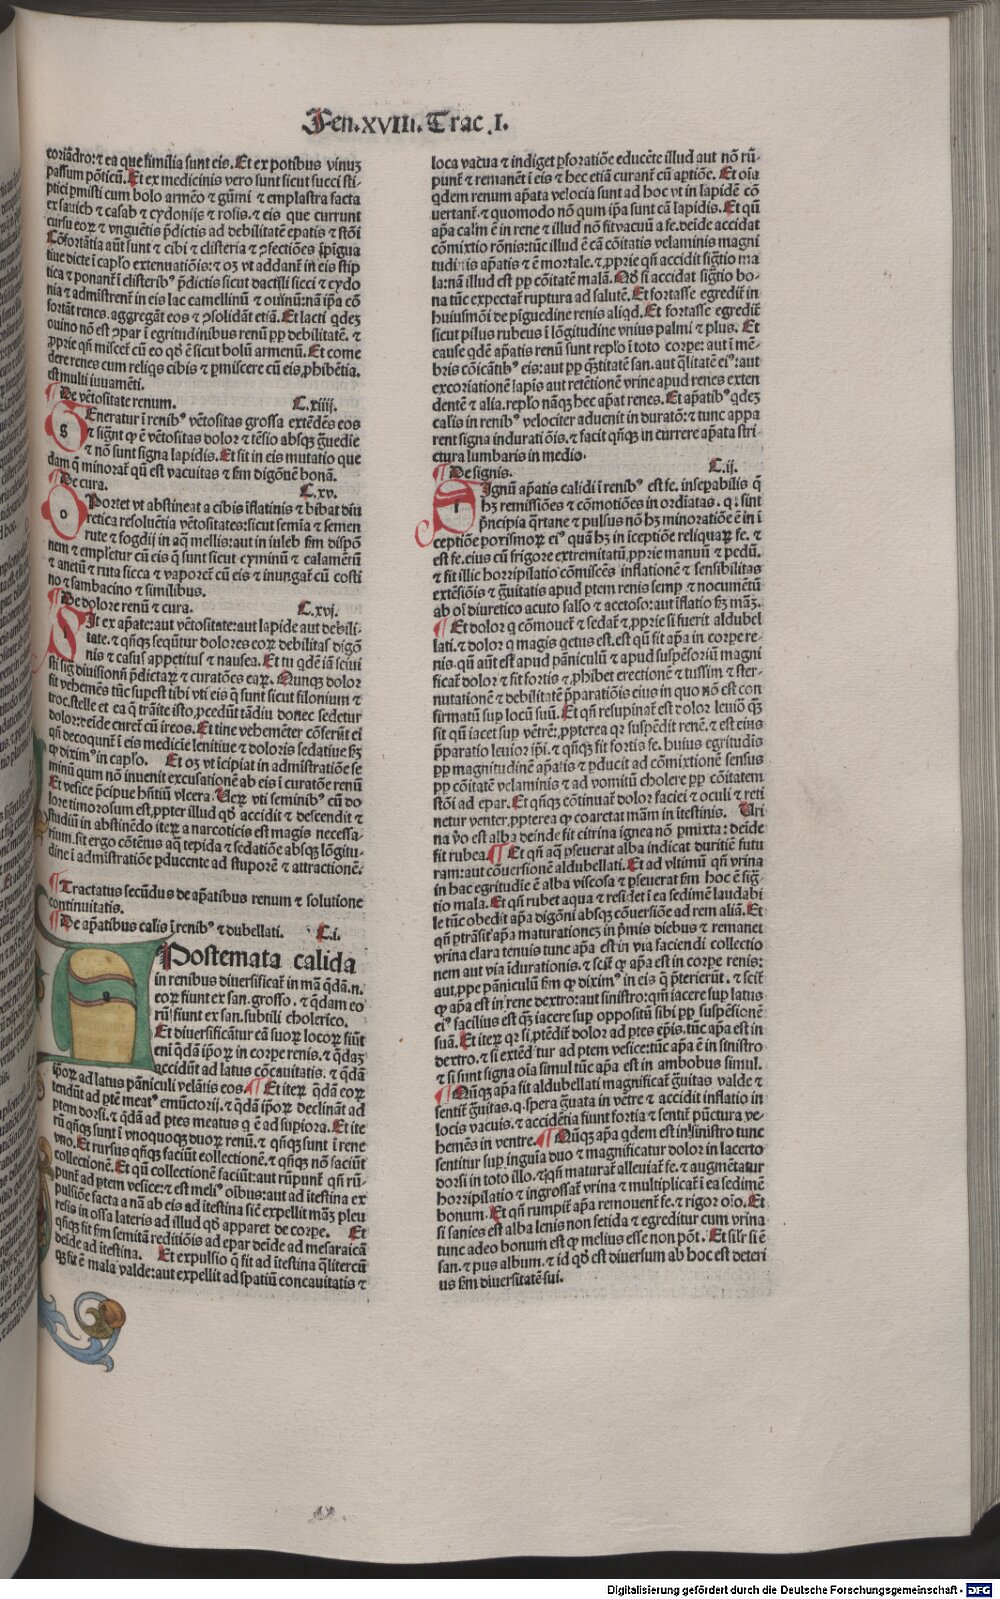 Fen.XVIII. Trac .I.
coriãdro: ⁊ ea que similia sunt eis. Et ex potibus vinuʒ
passum põticũ. Et ex medicinis vero sunt sicut succi sti-
ptici pmisti cum bolo armẽo ⁊ gũmi ⁊ emplastra facta
ex sauich ⁊ casab ⁊ cydonijs ⁊ rosis. ⁊ eis que currunt
cursu eoꝝ ⁊ vnguẽtis p̃dictis ad debilitatẽ epatis ⁊ stõi
Cõfortãtia aũt sunt ⁊ cibi ⁊ clisteria ⁊ ꝯfectiões
tiue dicte ĩ caplo extenuatiõis: ⁊ oʒ vt addant̃ in eis stip
tica ⁊ ponant̃ ĩ clisterib⁹ p̃dictis sicut dactili sicci ⁊ cydo
nia ⁊ admĩstrent̃ in eis lac camellinũ ⁊ ouinũ: nam ip̃a cõ
fortãt renes. aggregãt eos ⁊ ꝯsolidãt etiã. Et lacti qdeʒ
ouino nõ est ꝯpar ĩ egritudinibus renũ pp debilitatẽ. ⁊
ꝓprie qñ miscet̃ cũ eo qð ẽ sicut bolũ armenũ. Et come
dere renes cum reliqs cibis ⁊ pmiscere cũ eis, phibẽtia.
est multi iuuamẽti.
¶ De vẽtositate renum. C.xiiij.
GEneratur ĩ renib⁹ vẽtositas grossa extẽdẽs eos
⁊ sigñt ꝙ ẽ vẽtositas dolor ⁊ tẽsio absqʒ g̃uedie
⁊ nõ sunt signa lapidis. Et sit in eis mutatio que
dam q̃ minorat̃ qũ est vacuitas ⁊ s̃m digõnẽ bonã.
¶ De cura. C.xv.
OPortet vt abstineat a cibis ĩflatinis ⁊ bibat diu
retica resoluẽtia vẽtositates: sicut semĩa ⁊ semen
rute ⁊ fogdij in aq̃ mellis: aut in iuleb s̃m dispõ
nem ⁊ empletur cũ eis q̃ sunt sicut cyminũ ⁊ calamẽtũ
⁊ anetũ ⁊ ruta sicca ⁊ vaporet̃ cũ eis ⁊ inungat̃ cũ costi
no ⁊ sambacino ⁊ similibus.
¶ De dolore renũ ⁊ cura. C.xvj.
SIt ex ap̃ate: aut vẽtositate: aut lapide aut debili-
tate. ⁊ qñqʒ seqũtur dolores eoꝝ debilitas digõ
nis ⁊ casus appetitus ⁊ nausea. Et tu qdẽ iã sciui
sti sig diuisionũ p̃dictaꝝ ⁊ curatões eaꝝ. Qũqʒ dolor
fit vehemẽs tũc supest tibi vti eis q̃ sunt sicut filonium ⁊
troc. stelle et ea q̃ trãite isto, pcedũt tãdiu donec sedetur
dolor: deide curet̃ cũ ireos. Et tine vehemẽter cõferũt ei
qñ decoqunt̃ ĩ eis medicie lenitiue ⁊ doloris sedatiue s̃ʒ
ꝙ dixim⁹ in caplo. Et oʒ vt ĩcipiat in admĩstratiõe se
minũ qum nõ inuenit excusationẽ ab eis ĩ curatõe renũ
Et vesice p̃cipue hñtiũ vlcera. Ueꝝ vti seminib⁹ cũ do
lore timorosum est, ppter illud qð accidit ⁊ descendit ⁊
studiũ in abstinẽdo iteꝝ a narcoticis est magis necessa-
rium. sit ergo cõtẽtus aq̃ tepida ⁊ sedatiõe absqʒ lõgitu-
dine ĩ admĩstratiõe pducente ad stuporẽ ⁊ attractionẽ.
¶ Tractatus secũdus de ap̃atibus renum ⁊ solutione
continuitatis.
¶ De ap̃atibus calis ĩ renib⁹ ⁊ dubellati. C.i.
APostemata calida
in renibus diuersificat̃ in mã qdã.n.
eoꝝ fiunt ex san. grosso. ⁊ qdam eo
rũ fiunt ex san. subtili cholerico.
Et diuersificãtur eã suoꝝ locoꝝ siũt
eni qdã ipõꝝ in corpe renis. ⁊ qdaʒ
accidũt ad latus cõcauitatis. ⁊ qdã
ipoꝝ ad latus pãniculi velãtis eos. ¶ Et iteꝝ qdã eoꝝ
tendũt ad ptẽ meat⁹ emũctorij. ⁊ qdã ipoꝝ declinãt ad
ptem dorsi. ⁊ qdã ad ptes meatus q̃ ẽ ad supiora. Et ite
rũ qñqʒ sunt ĩ vnoquoqʒ duoꝝ renũ. ⁊ qñqʒ sunt ĩ rene
vno. Et rursus qñqʒ faciũt collectionẽ. ⁊ qñqʒ nõ faciũt
collectionẽ. Et qũ collectionẽ faciũt: aut rũpunt̃ qñ rũ-
punt̃ ad ptem vesice: ⁊ est meli⁹ oĩbus: aut ad ĩtestina ex
pulsiõe facta a nã ab eis ad ĩtestina sic̃ expellit mãʒ pleu
resis in ossa lateris ad illud qð apparet de corpe. Et
qñqʒ fit s̃m semitã reditiõis ad epar deide ad mesaraicã
deide ad ĩtestina. Et expulsio q̃ fit ad ĩtestina qlitercũ
qʒ fit ẽ mala valde: aut expellit ad spatiũ concauitatis ⁊
loca vacua ⁊ indiget pforatiõe educẽte illud aut nõ rũ-
punt̃ ⁊ remanẽt ĩ eis ⁊ hec etiã curant̃ cũ aptiõe. Et oĩa
qdem renum ap̃ata velocia sunt ad hoc vt in lapidẽ cõ
uertant̃. ⁊ quomodo nõ qum ip̃a sunt cã lapidis. Et qũ
ap̃a calm ẽ in rene ⁊ illud nõ fit vacuũ a fe. deide accidat
cõmixtio rõnis: tũc illud ẽ cã cõitatis velaminis magni
tudinis ap̃atis ⁊ ẽ mortale. ⁊, pprie qñ accidit sig̃tio ma
la: nã illud est pp cõitatẽ malã. Qð si accidat sig̃tio bo-
na tũc expectat̃ ruptura ad salutẽ. Et fortasse egredit̃ in
huiusmõi de pĩguedine renis aliqd. Et fortasse egredit̃
sicut pilus rubeus ĩ lõgitudine vnius palmi ⁊ plus. Et
cause qdẽ ap̃atis renũ sunt replo ĩ toto corpe: aut ĩ mẽ-
bris cõicãtib⁹ eis: aut pp q̃titatẽ san. aut q̃litatẽ ei⁹: aut
excoriationẽ lapis aut retẽtionẽ vrine apud renes exten
dentẽ ⁊ alia. replo nãqʒ hec ap̃at renes. Et ap̃atib⁹ qdeʒ
calis in renib⁹ velociter aduenit in duratõ: ⁊ tunc appa
rent signa indurati õis. ⁊ facit qñqʒ in currere ap̃ata stri
ctura lumbaris in medio.
¶ De signis. C.ij.
SIgnũ ap̃atis calidi ĩ renib⁹ est fe. insepabilis q̃
hʒ remissiões ⁊ cõmotiões in ordiatas. q. sint
p̃ncipia q̃rtane ⁊ pulsus nõ hʒ minoratiõe ẽ in ĩ
ceptiõe poxismoꝝ ei⁹ quã hʒ in ĩceptiõe reliquaꝝ fe. ⁊
est fe. eius cũ frigore extremitatũ, pprie manuũ ⁊ pedũ.
⁊ fit illic horripilatio cõmiscẽs inflationẽ ⁊ sensibilitas
extẽsiõis ⁊ g̃uitatis apud ptem renis semp ⁊ nocumẽtũ
ab oĩ diuretico acuto salso ⁊ acetoso: aut ĩflatio s̃ʒ mãʒ.
¶ Et dolor q̃ cõmouet̃ ⁊ sedat̃ ⁊, pprie si fuerit aldubel
lati. ⁊ dolor q magis qetus est. est qũ fit ap̃a in corpe re-
nis. qũ aũt est apud pãniculũ ⁊ apud suspẽsoriũ magni
ficat̃ dolor ⁊ fit fortis ⁊, phibet erectionẽ ⁊ tussim ⁊ ster-
nutationẽ ⁊ debilitatẽ p̃paratiõis eius in quo nõ est con
firmatũ sup locũ suũ. Et qñ resupinat̃ est dolor leuio q̃ʒ
sit qũ iacet sup vẽtrẽ:, ppterea qr suspẽdit renẽ. ⁊ est eius
p̃paratio leuior ipĩ. ⁊ qñqʒ fit fortis fe. huius egritudis
pp magnitudinẽ ap̃atis ⁊ pducit ad cõmixtionẽ sensus
pp cõitatẽ velaminis ⁊ ad vomitũ cholere pp cõitatem
stõi ad epar. Et qñqʒ cõtinuat̃ dolor faciei ⁊ oculi ⁊ reti
netur venter, ppterea ꝙ coarctat mãm in ĩtestinis. Uri
na v̊o est alba deinde fit citrina ignea nõ pmixta: deide
fit rubea. ¶ Et qñ aq̃ pseuerat alba indicat duritiẽ futu
ram: aut cõuersionẽ aldubellati. Et ad vltimũ qñ vrina
in hac egritudie ẽ alba viscosa ⁊ pseuerat s̃m hoc ẽ sig-
tio mala. Et qñ rubet aqua ⁊ residet ĩ ea sedimẽ laudabi
le tũc obedit ap̃a digõni absqʒ cõuersiõe ad rem aliã. Et
qñ ptrãsit ap̃a maturationeʒ in p̃mis diebus ⁊ remanet
vrina clara tenuis tunc ap̃a est in via faciendi collectio
nem aut via ĩdurationis. ⁊ scit̃ ꝙ ap̃a est in corpe renis:
aut, ppe pãniculũ s̃m ꝙ dixim⁹ in eis q̃ p̃terierũt. ⁊ scit̃
ꝙ ap̃a est in rene dextro: aut sinistro: qm̃ iacere sup latus
ei⁹ facilius est q̃ʒ iacere sup oppositũ sibi pp suspẽsionẽ
suã. Et iteꝝ qr si, ptẽdit̃ dolor ad ptes ep̃is. tũc ap̃a est in
dextro. ⁊ si extẽd tur ad ptem vesice: tũc ap̃a ẽ in sinistro
⁊ si sunt signa oĩa simul tũc ap̃a est in ambobus simul.
¶ Qũqʒ ap̃a fit aldubellati magnificat̃ g̃uitas valde ⁊
sentit̃ g̃uitas. q. spera g̃uata in vẽtre ⁊ accidit inflatio in
locis vacuis. ⁊ accidẽtia fiunt fortia ⁊ sentit̃ pũctura ve-
hemẽs in ventre. ¶ Qũqʒ ap̃a qdem est in sinistro tunc
sentitur sup inguĩa duo ⁊ magnificatur dolor in lacerto
dorsi in toto illo. ⁊ qñ maturat̃ alleuiat̃ fe. ⁊ augmẽtatur
horripilatio ⁊ ingrossat̃ vrina ⁊ multiplicat̃ ĩ ea sedimẽ
bonum. Et qñ rumpit̃ ap̃a remouent̃ fe. ⁊ rigor oĩo. Et
si sanies est alba lenis non fetida ⁊ egreditur cum vrina
tunc adeo bonum est ꝙ melius esse non põt. Et silr si ẽ
san. ⁊ pus album. ⁊ id qð est diuersum ab hoc est deteri
us s̃m diuersitatẽ sui.
Digitalisierung gefördert durch die Deutsche Forschungsgemeinschaft - DFG